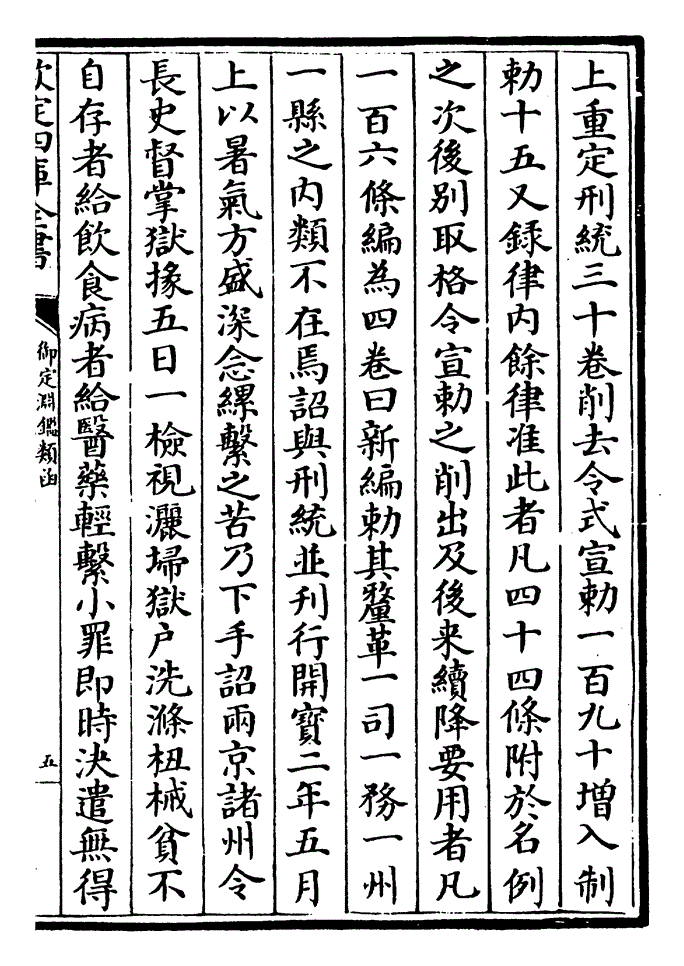 上重定刑統三十卷削去令式宣勅一百九十增入制
勅十五又録律内餘律准此者凡四十四條附於名例
之次後別取格令宣勅之削出及後来續降要用者凡
一百六條編為四卷曰新編勅其釐革一司一務一州
一縣之内類不在焉詔與刑統並刊行開寶二年五月
上以暑氣方盛深念縲繫之苦乃下手詔兩京諸州令
長吏督掌獄掾五日一檢視灑埽獄户洗滌杻械貧不
自存者給飲食病者給醫藥輕繫小罪即時決遣無得
欽定四庫全書
御定淵鑑類函
五